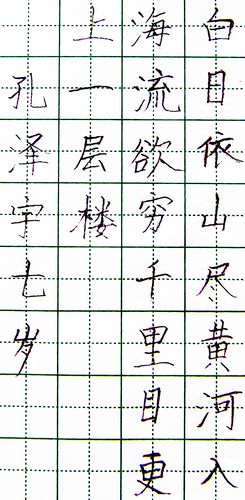 白日依山尽黄河入
海流欲穷千里目更
上一层楼
孔泽宇七岁